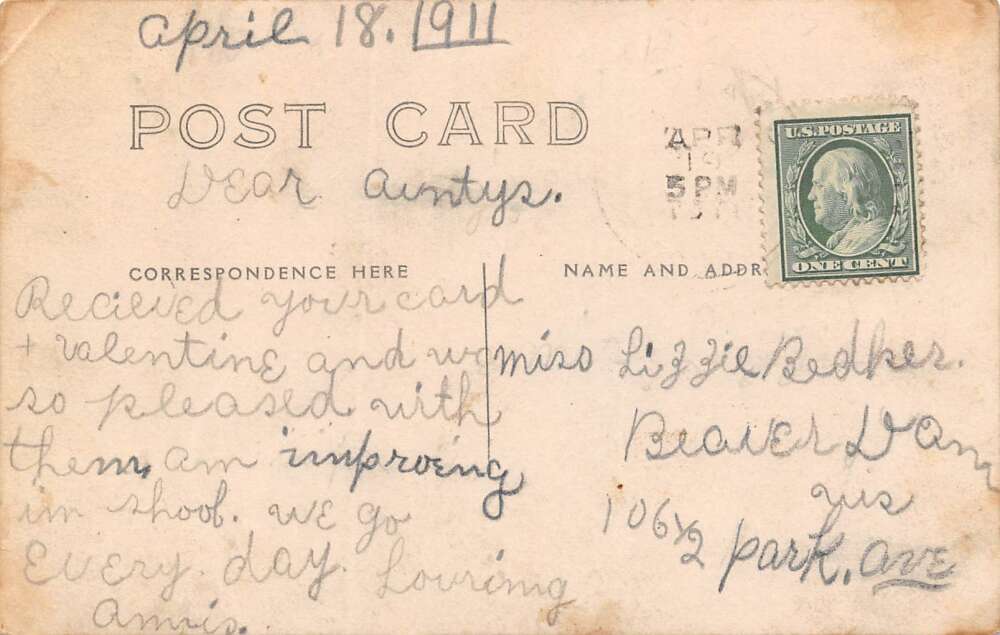 April 18. 1911
POST CARD
APR
19
5 PM
1911
U.S. POSTAGE
ONE CENT
Dear Auntys.
CORRESPONDENCE HERE
NAME AND ADDR
Recieved your card
+ valentine and w
so pleased with
them, am improeng
in shool. we go
Every. day. Lovring
Miss Lizzie Bedker.
Beaver Dam
wis
106 1/2 park. ave